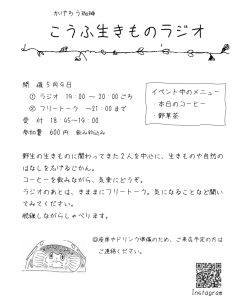 かげろう珈琲
こうふ生きものラジオ
開 催 5月9日
① ラジオ 19:00 〜 20:00ごろ
② フリートーク 〜21:00まで
受 付 18:45〜19:00
参加費 600円 飲み物込み
イベント中のメニュー
・本日のコーヒー
・野草茶
野生の生きものに関わってきた2人を中心に、生きものや自然の
はなしをお届けるじかん。
コーヒーを飲みながら、気楽にどうぞ。
ラジオのあとは、きままにフリートーク。気になることなど聞い
てみてください。
脱線しながらしゃべります。
◎座席やドリンク準備のため、ご来店予定の方は
ご連絡ください。
Instagram